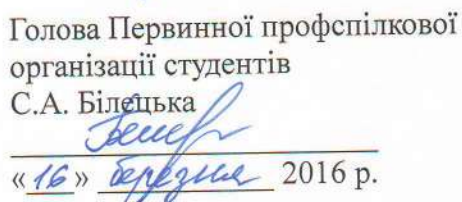 Голова Первинної профспілкової
організації студентів
С.А. Білецька
«16» березня 2016 р.